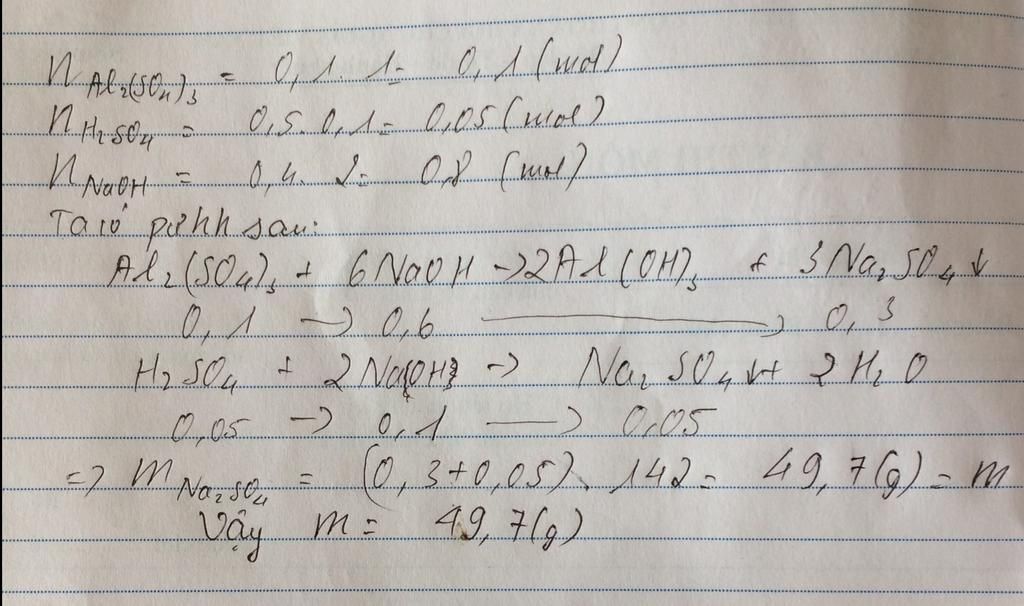 n Al₂(SO₄)₃ = 0,1. 1= 0,1 (mol)
n H₂SO₄ = 0,5. 0,1= 0,05 (mol)
n NaOH = 0,4. 2= 0,8 (mol)
Ta có pthh sau:
Al₂(SO₄)₃ + 6NaOH →2Al(OH)₃ + 3Na₂SO₄ ↓
0,1 → 0,6 → 0,3
H₂SO₄ + 2NaOH → Na₂SO₄↓+ 2H₂O
0,05 → 0,1 → 0,05
=> m Na₂SO₄ = (0,3+0,05). 142= 49,7(g) = m
Vậy m= 49,7(g)